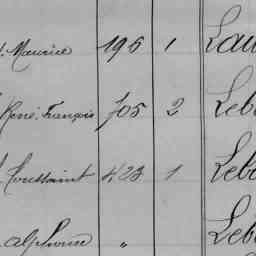 Maurice 196 1 Lau
René François 705 2 Leb
Toussaint 423 1 Leb
Alphonse " Leb